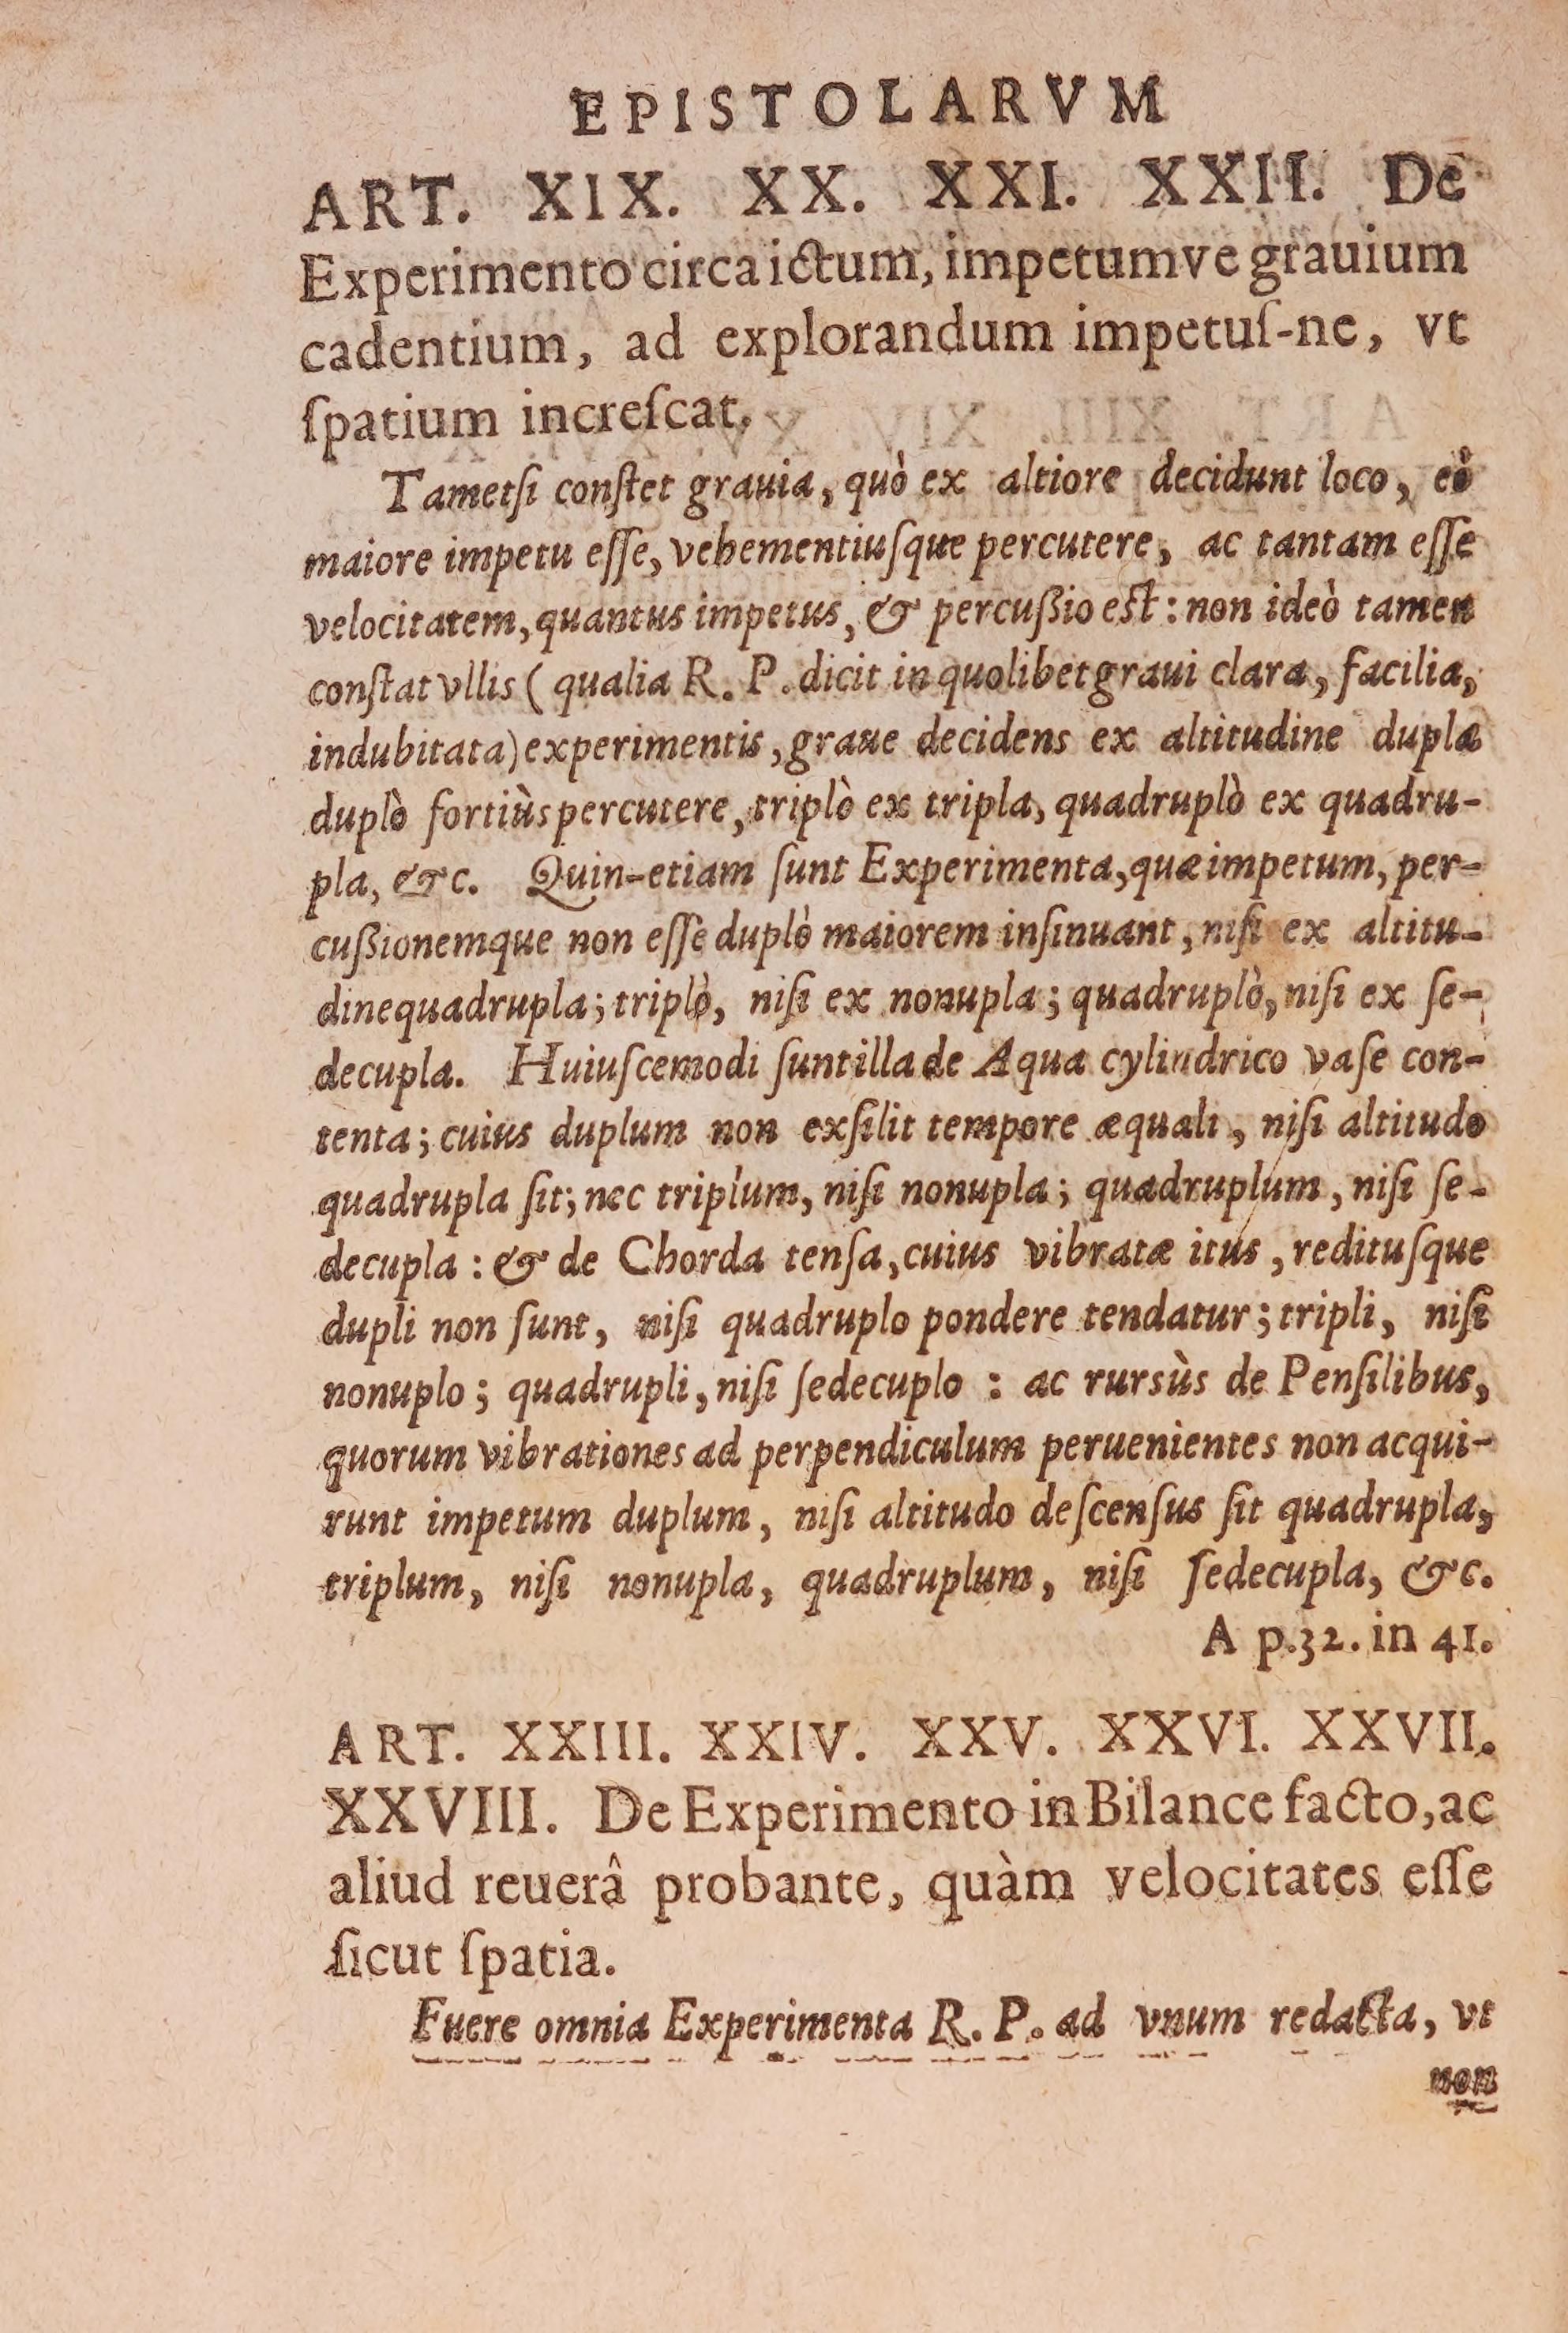 EPISTOLARVM
ART. XIX. XX. XXI. XXII. De
Experimento circa ictum, impetumve grauium
cadentium, ad explorandum impetuſ-ne, vt
ſpatium increſcat.
Tametſi conſtet grauia, quò ex altiore decidunt loco, eò
maiore impetu eſſe, vehementiuſque percutere, ac tantam eſſe
velocitatem, quantus impetus, & percuſſio eſt: non ideò tamen
conſtat vllis ( qualia R. P. dicit in quolibet graui clara, facilia,
indubitata) experimentis, graue decidens ex altitudine dupla
duplò fortiùs percutere, triplò ex tripla, quadruplò ex quadru-
pla, &c. Quin-etiam ſunt Experimenta, quæ impetum, per-
cuſſionemque non eſſe duplò maiorem inſinuant, niſi ex altitu-
dine quadrupla; triplò, niſi ex nonupla; quadruplò, niſi ex ſe-
decupla. Huiuſcemodi ſunt illa de Aqua cylindrico vaſe con-
tenta; cuius duplum non exſilit tempore æquali, niſi altitudo
quadrupla ſit; nec triplum, niſi nonupla; quadruplum, niſi ſe-
decupla: & de Chorda tenſa, cuius vibratæ itus, redituſque
dupli non ſunt, niſi quadruplo pondere tendatur; tripli, niſi
nonuplo; quadrupli, niſi ſedecuplo : ac rursùs de Penſilibus,
quorum vibrationes ad perpendiculum peruenientes non acqui-
runt impetum duplum, niſi altitudo deſcenſus ſit quadrupla,
triplum, niſi nonupla, quadruplum, niſi ſedecupla, &c.
A p.32. in 41.
ART. XXIII. XXIV. XXV. XXVI. XXVII.
XXVIII. De Experimento in Bilance facto, ac
aliud reuerâ probante, quàm velocitates eſſe
ſicut ſpatia.
Fuere omnia Experimenta R. P. ad vnum redacta, vt
non